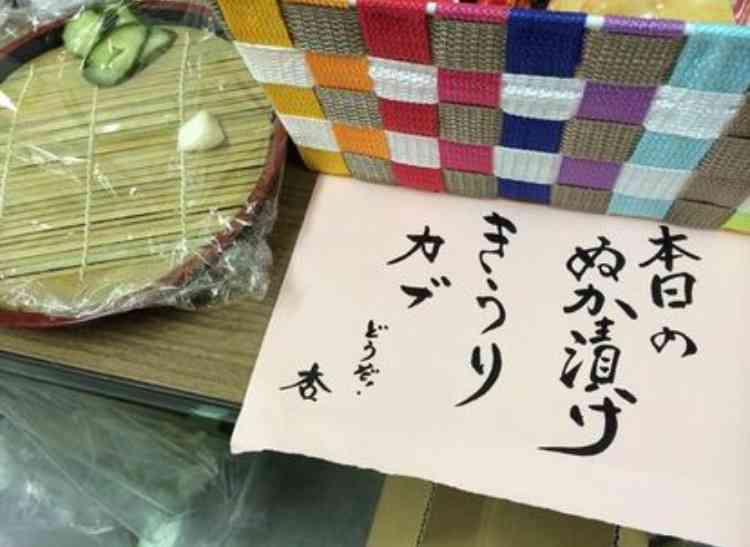 本日の
ぬか漬け
きうり
カブ
どうだ!
杏